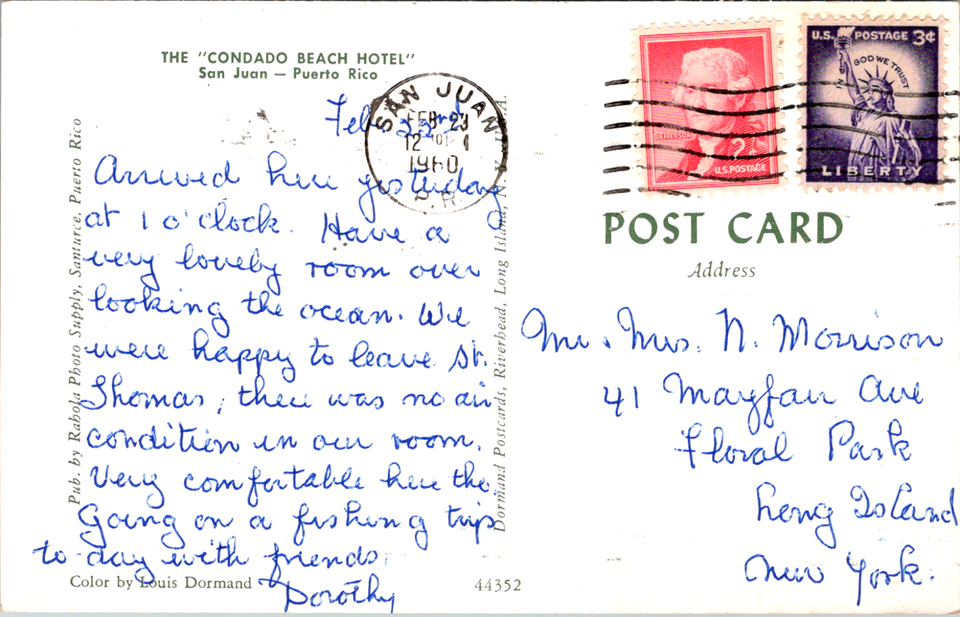 THE "CONDADO BEACH HOTEL"
San Juan — Puerto Rico
Feb 23rd
Arrived here yesterday
at 1 o'clock. Have a
very lovely room over
looking the ocean. We
were happy to leave St.
Thomas, there was no air
condition in our room.
Very comfortable here tho.
Going on a fishing trip
to-day with friends.
Dorothy
Pub. by Rahola Photo Supply, Santurce, Puerto Rico
Color by Louis Dormand
44352
Dormand Postcards, Riverhead, Long Island, N.Y., U.S.A.
SAN JUAN
FEB 23
12
1960
P.R.
JEFFERSON
2¢
U.S. POSTAGE
U.S. POSTAGE 3¢
IN GOD WE TRUST
LIBERTY
POST CARD
Address
Mr. Mrs. N. Morrison
41 Mayfair Ave
Floral Park
Long Island
New York.